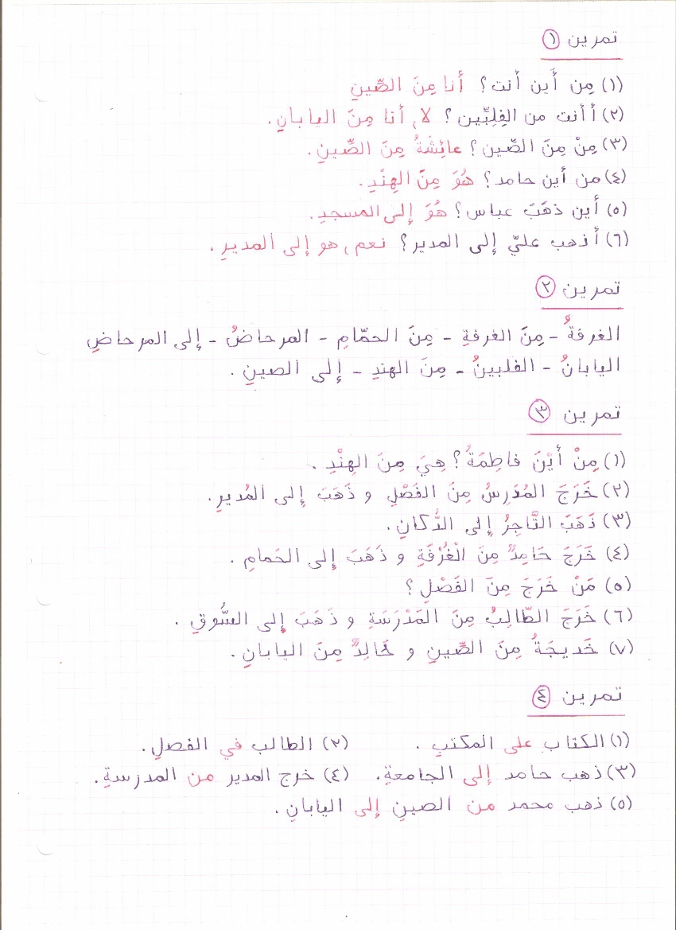 تمرين ١
(١) مِن أَين أنت؟ أنا مِنَ الصِّينِ
(٢) أأنت من الفِلِبِّين؟ لا, أنا مِنَ اليابانِ.
(٣) مِنْ مِنَ الصِّين؟ عائِشَةُ مِنَ الصِّينِ.
(٤) من أين حامد؟ هُوَ مِنَ الهِنْدِ.
(٥) أين ذهَبَ عباس؟ هُوَ إلى المسجدِ.
(٦) أذهب عليّ إلى المدير؟ نعم, هو إلى المديرِ.
تمرين ٢
الغرفةُ - مِنَ الغرفةِ - مِنَ الحمّامِ - المرحاضُ - إلى المرحاضِ
اليابانُ - الفلبينُ - مِنَ الهندِ - إلى الصينِ.
تمرين ٣
(١) مِنْ أَيْنَ فاطِمَةُ؟ هِيَ مِنَ الهِنْدِ.
(٢) خَرَجَ المُدَرِسُ مِنَ الفَصْلِ و ذَهَبَ إلى المُديرِ.
(٣) ذَهَبَ التَّاجِرُ إلى الدُّكانِ.
(٤) خَرَجَ حَامِدٌ مِنَ الْغُرْفَةِ و ذَهَبَ إلى الحَمامِ.
(٥) مَنْ خَرَجَ مِنَ الفَصْلِ؟
(٦) خَرَجَ الطَّالِبُ مِنَ المَدْرَسَةِ و ذَهَبَ إلى السُّوقِ.
(٧) خَديجَةُ مِنَ الصِّينِ و خَالِدٌ مِنَ اليابانِ.
تمرين ٤
(١) الكتاب على المكتبِ. (٢) الطالب في الفصلِ.
(٣) ذهب حامد إلى الجامعةِ. (٤) خرج المدير من المدرسةِ.
(٥) ذهب محمد من الصينِ إلى اليابانِ.